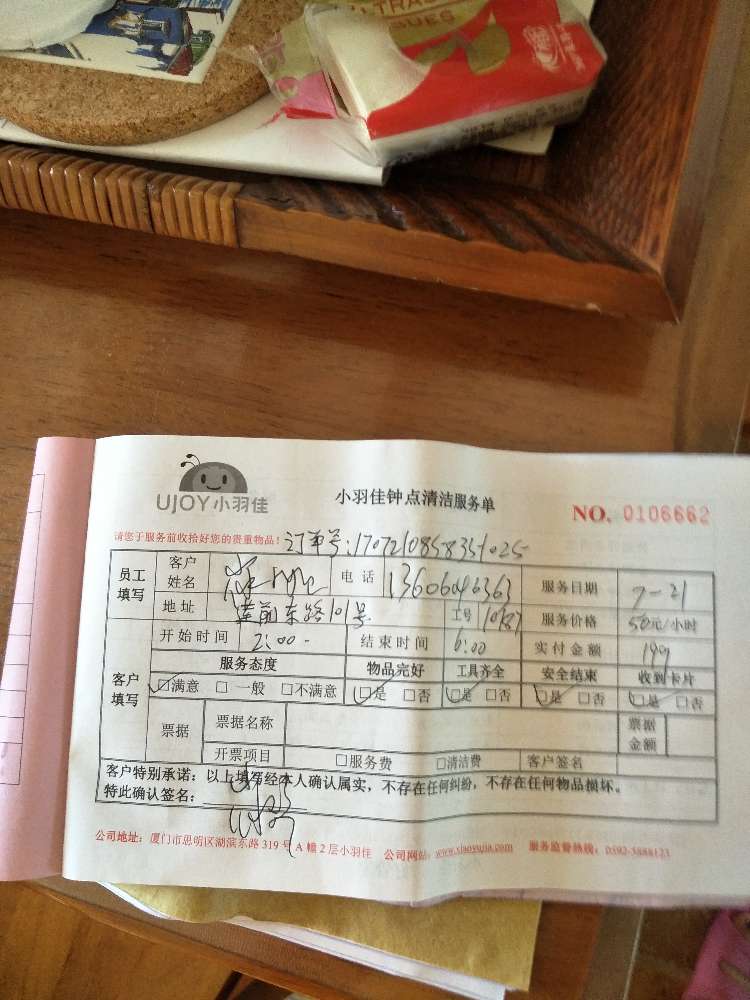 ULTRA
UJOY小羽佳
小羽佳钟点清洁服务单
NO. 0106662
请您于服务前收拾好您的贵重物品!
员工填写
客户姓名
电话
13606046363
服务日期
7-21
地址
莲前东路101号
工号
服务价格
50元/小时
开始时间
2:00
结束时间
6:00
实付金额
199
客户填写
服务态度
物品完好
工具齐全
安全结束
收到卡片
☑满意 □一般 □不满意
☑是 □否
☑是 □否
☑是 □否
☑是 □否
票据
票据名称
票据金额
开票项目
□服务费 □清洁费
客户签名
客户特别承诺:以上填写经本人确认属实,不存在任何纠纷,不存在任何物品损坏。
特此确认签名:
公司地址:厦门市思明区湖滨东路319号A幢2层小羽佳 公司网站:www.xiaoyujia.com 服务监督热线:0592-5888123